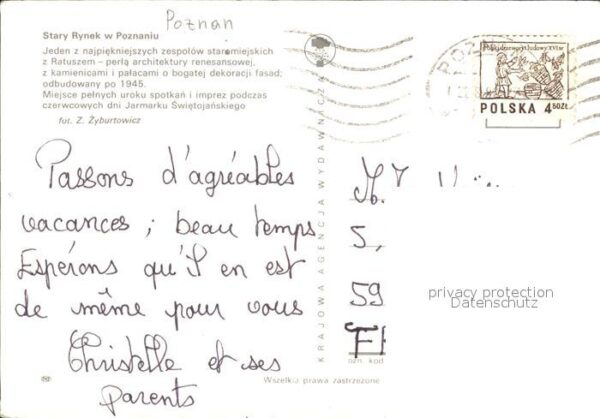 Poznan
Stary Rynek w Poznaniu
Jeden z najpiękniejszych zespołów staromiejskich
z Ratuszem – perłą architektury renesansowej,
z kamienicami i pałacami o bogatej dekoracji fasad,
odbudowany po 1945.
Miejsce pełnych uroku spotkań i imprez podczas
czerwcowych dni Jarmarku Świętojańskiego
fot. Z. Żyburtowicz
Passons d'agréables
vacances ; beau temps
Espérons qu'il en est
de même pour vous
Christelle et ses
parents
KRAJOWA AGENCJA WYDAWNICZA
POZNAŃ
POLSKA 4 50ZŁ
5,
59
privacy protection
Datenschutz
kod
Wszelkie prawa zastrzeżone